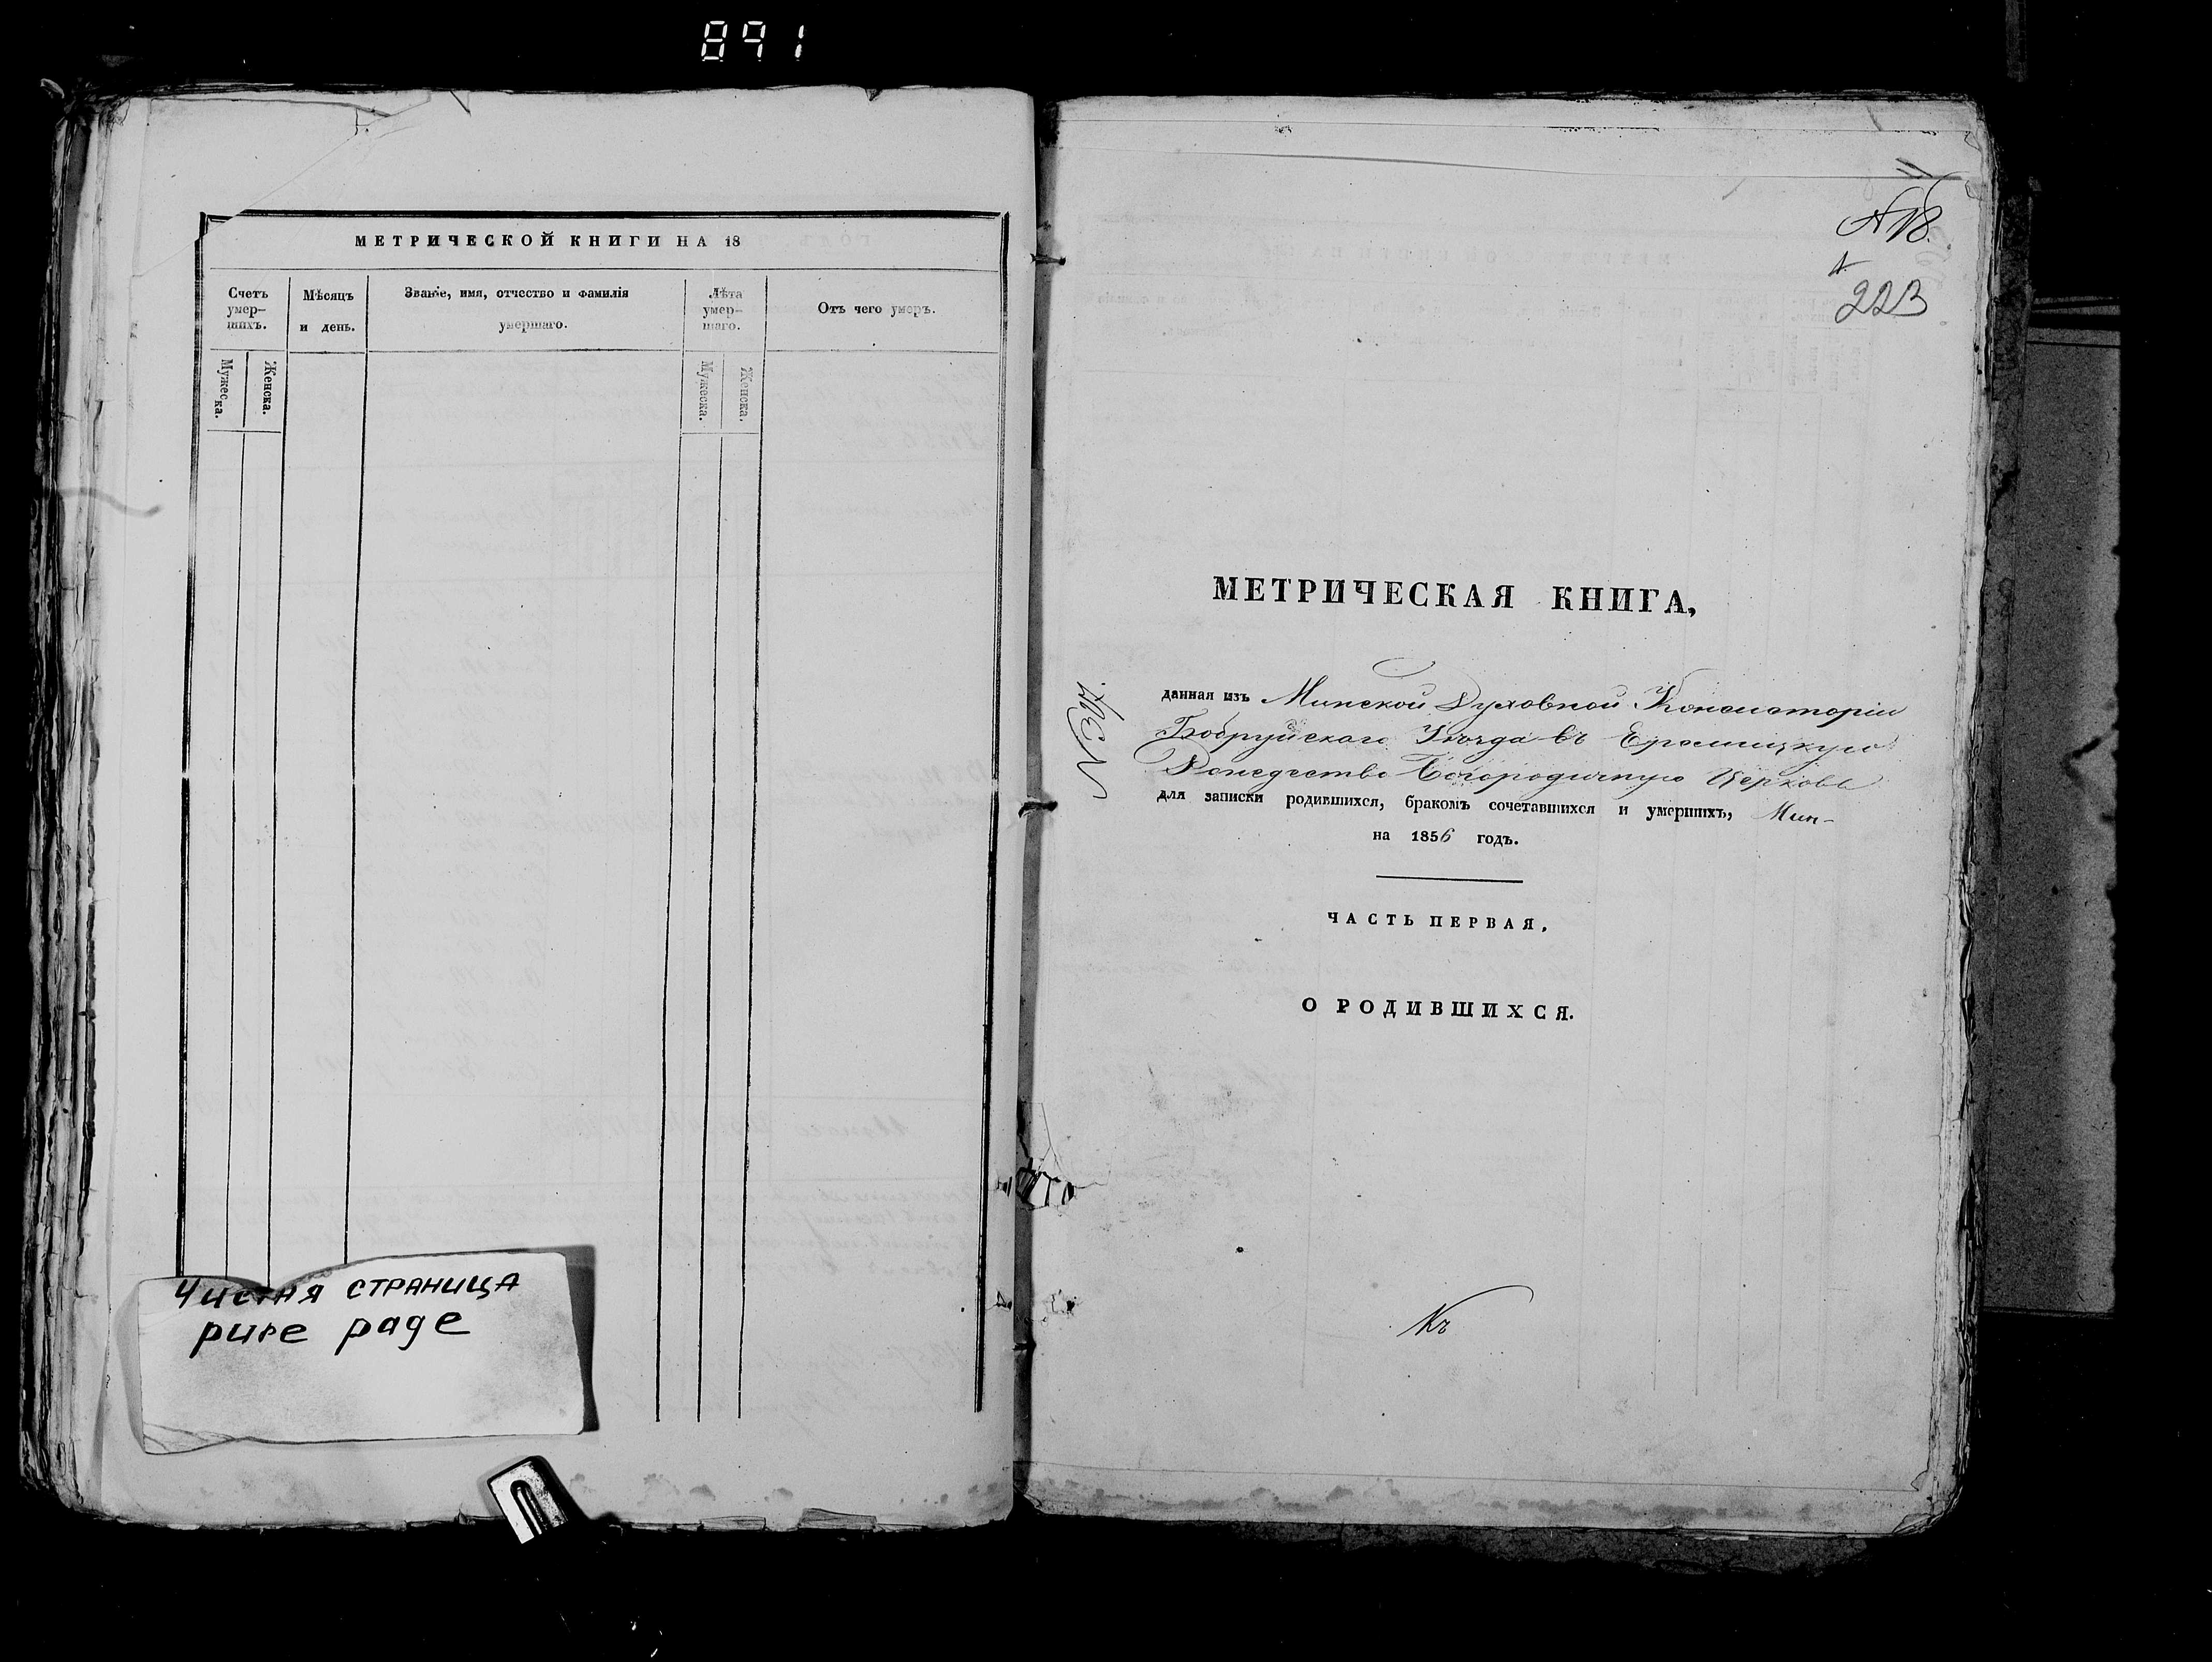 891
МЕТРИЧЕСКОЙ КНИГИ НА 18
Счетъ умер-шихъ.
Мѣсяцъ и день.
Званіе, имя, отчество и фамилія умершаго.
Лѣта умер-шаго.
Отъ чего умеръ.
Мужеска.
Женска.
Мужеска.
Женска.
Чистая страница
pure page
223
МЕТРИЧЕСКАЯ КНИГА,
№ 307.
данная изъ Минской Духовной Консисторіи
Бобруйскаго Уѣзда въ
Рождество Богородичную Церковь
для записки родившихся, бракомъ сочетавшихся и умершихъ,
на 1856 годъ.
ЧАСТЬ ПЕРВАЯ.
О РОДИВШИХСЯ.